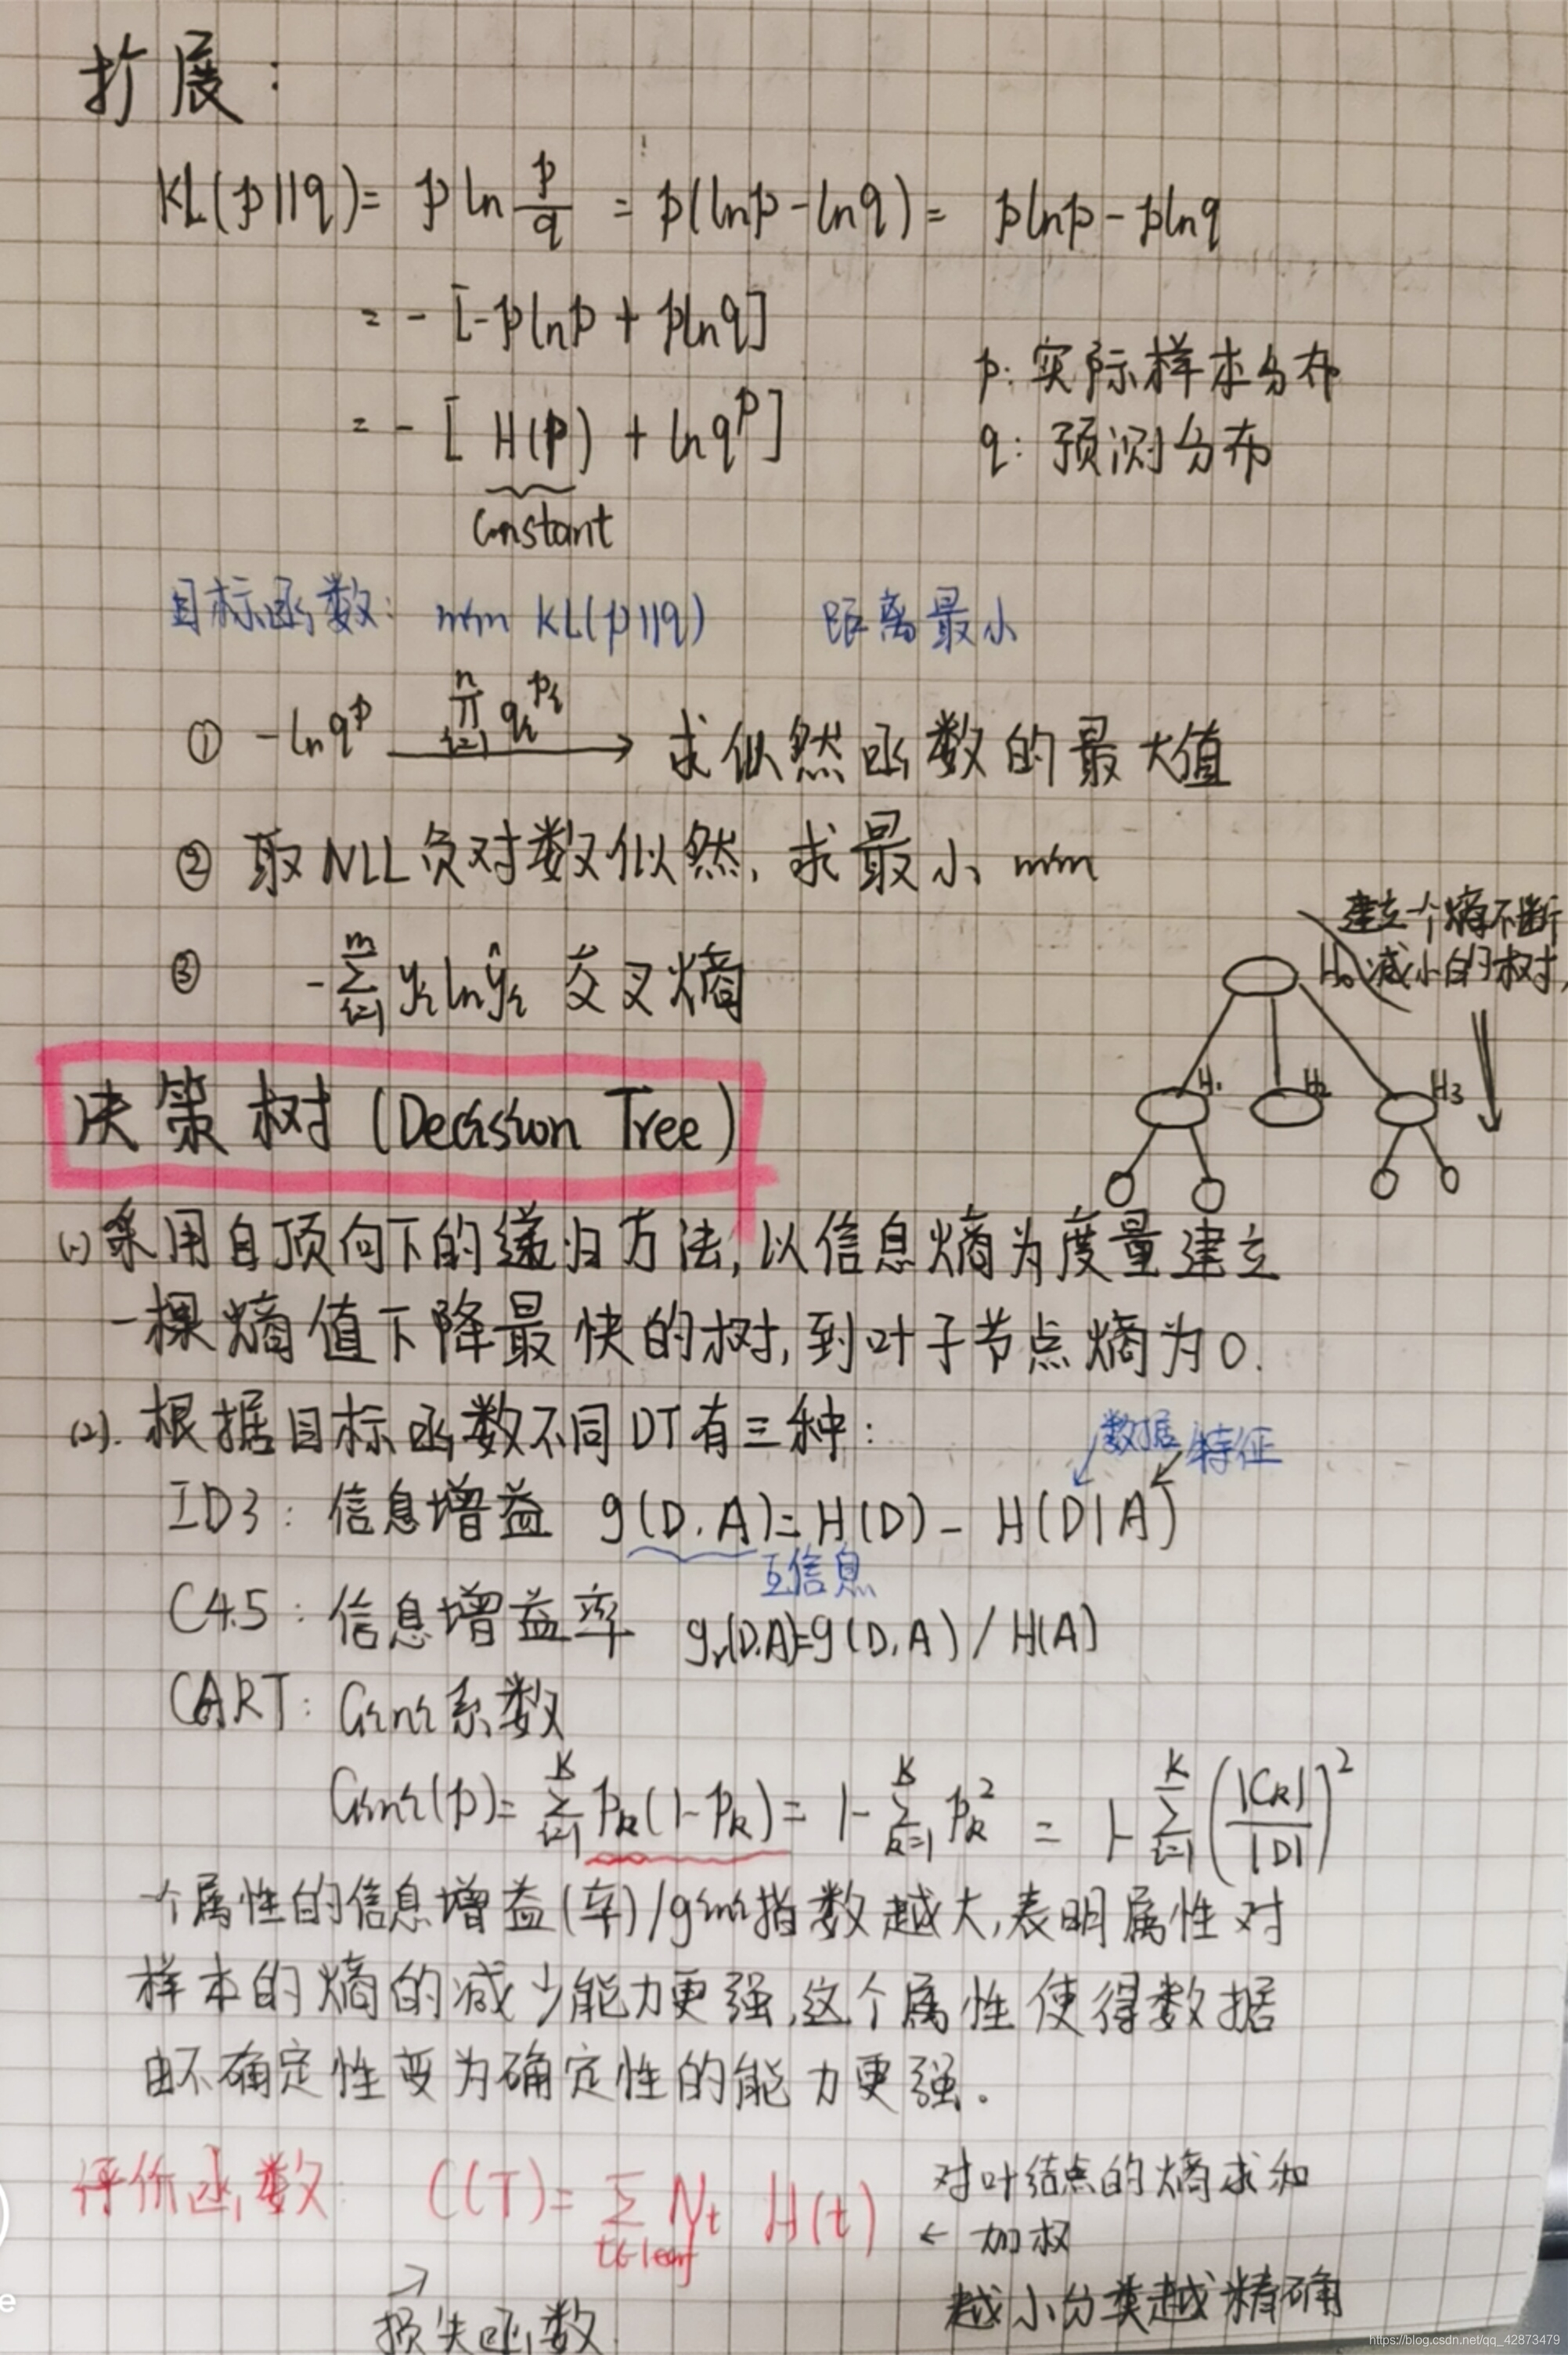 扩展:
KL(p||q)= p ln p/q = p(lnp-lnq)= plnp-plnq
= - [-plnp + plnq]
= - [ H(p) + lnq^p ]
constant
p: 实际样本分布
q: 预测分布
目标函数: min KL(p||q) 距离最小
① -lnq^p \prod_{i=1}^{n} q_i^{p_i} → 求似然函数的最大值
② 取NLL负对数似然, 求最小 min
③ -\sum_{i=1}^{m} y_i ln ŷ_i 交叉熵
建立一个熵不断
减小的树,
H₀
H₁ H₂ H₃
决策树 (Decision Tree)
(1) 采用自顶向下的递归方法, 以信息熵为度量建立
一棵熵值下降最快的树, 到叶子节点熵为0.
(2). 根据目标函数不同DT有三种:
数据 特征
ID3: 信息增益 g(D,A)=H(D)- H(D|A)
互信息
C4.5: 信息增益率 g_r(D,A)=g(D,A) / H(A)
CART: Gini系数
Gini(p)= \sum_{i=1}^{K} p_k(1-p_k)= 1-\sum_{k=1}^{K} p_k^2 = 1-\sum_{i=1}^{K} (|C_k|/|D|)^2
一个属性的信息增益(率)/gini指数越大, 表明属性对
样本的熵的减少能力更强, 这个属性使得数据
由不确定性变为确定性的能力更强.
评价函数: C(T)= \sum_{t∈leaf} N_t H(t)
对叶结点的熵求和
← 加权
越小分类越精确
↗
损失函数.
e
https://blog.csdn.net/qq_42873479